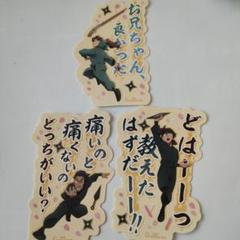 お兄ちゃん、
良かった
痛いのと
痛くないの
どっちがいい？
どはーーっ
教えた
はずだーー!!